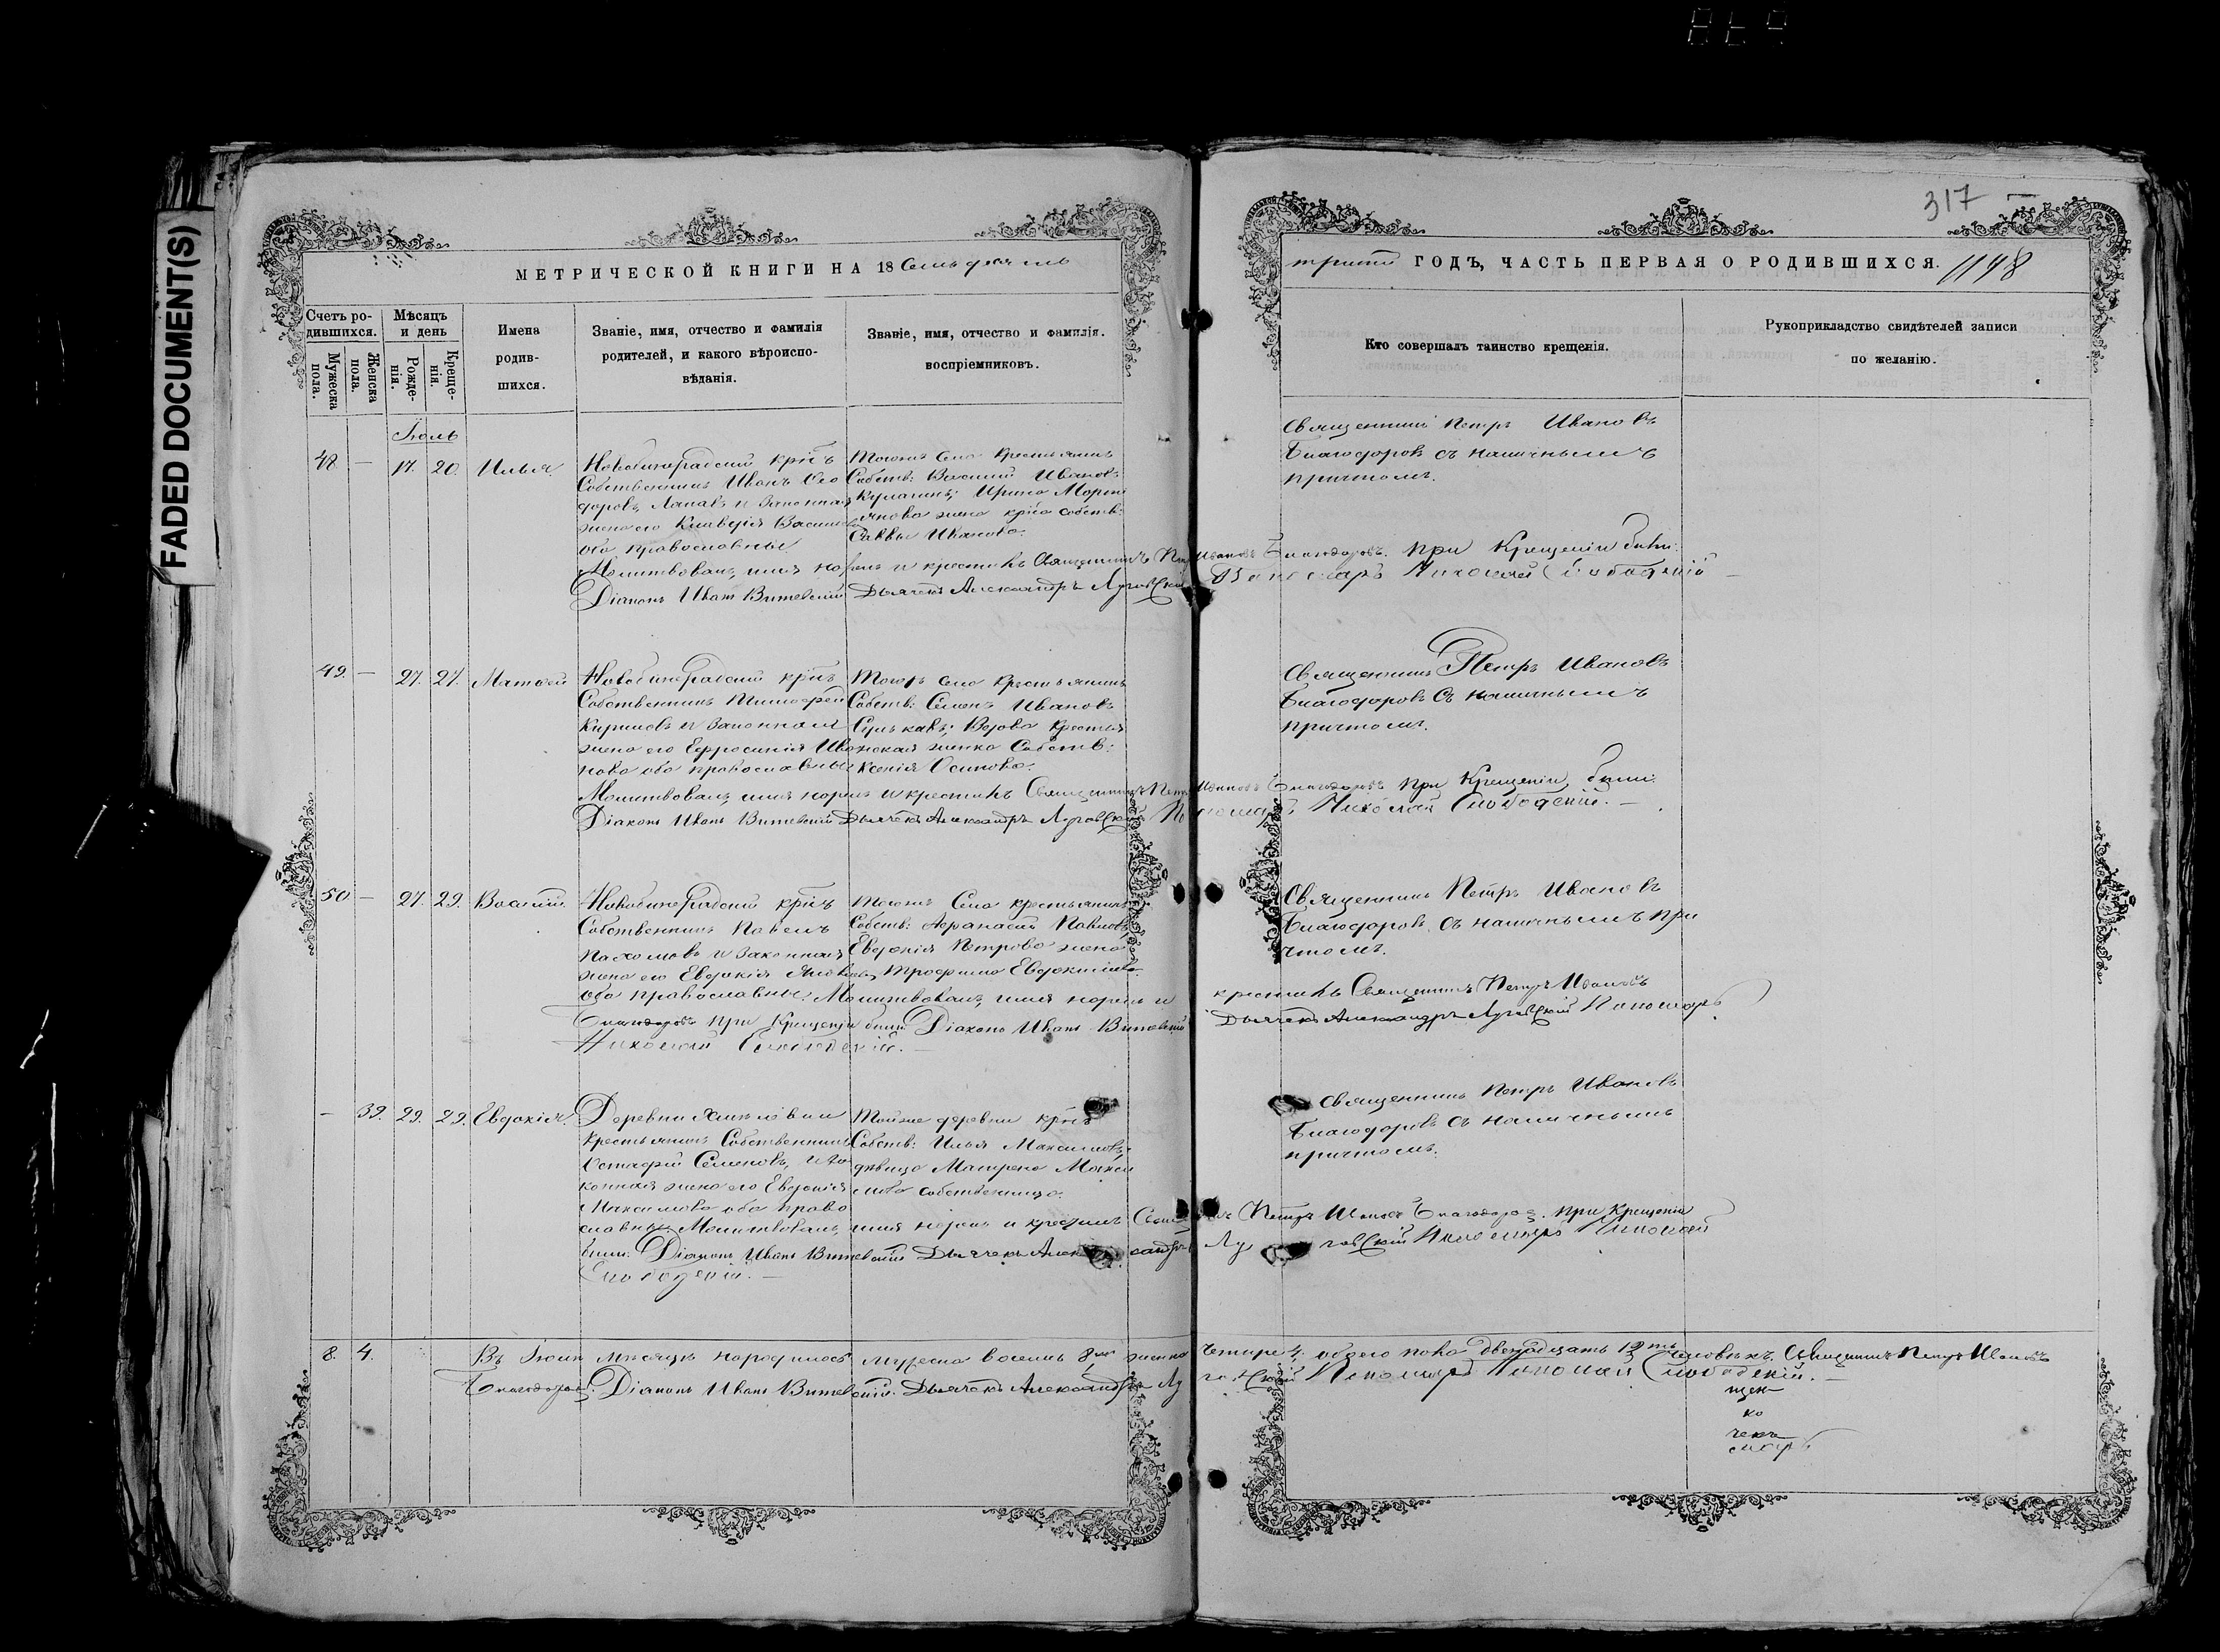 FADED DOCUMENT(S)
317
МЕТРИЧЕСКОЙ КНИГИ НА 18 Семьдесятъ
третій ГОДЪ, ЧАСТЬ ПЕРВАЯ О РОДИВШИХСЯ. 1148
Счетъ ро-
дившихся.
Мужеска
пола.
Женска
пола.
Мѣсяцъ
и день
Рожде-
нія.
Креще-
нія.
Имена
родив-
шихся.
Званіе, имя, отчество и фамилія
родителей, и какого вѣроиспо-
вѣданія.
Званіе, имя, отчество и фамилія.
воспріемниковъ.
Кто совершалъ таинство крещенія.
Рукоприкладство свидѣтелей записи
по желанію.
Іюль
48. — 17. 20. Илья
крнъ
Собственникъ Иванъ Ѳео
доровъ и законная
жена его Василье
оба православные.
Тогожъ Села Крестьянинъ
Собств: Василій Ивановъ
Кулагинъ; Ирина Марти
янова жена крна собств:
Саввы Иванова.
Священникъ Петръ Ивановъ
Благодаровъ съ наличнымъ
причтомъ.
Молитвовалъ, имя нарекъ и крестилъ Священникъ Петръ Ивановъ Благодаровъ. При Крещеніи были:
Діаконъ Иванъ Витевскій Дьячекъ Александръ Луговскій Пономарь Николай Слободскій —
49. — 27. 27. Матвей
крнъ
Собственникъ Тимофей
Кириловъ и законная
жена его Ефросинія Ива
нова оба православные
Тогожъ Села Крестьянинъ
Собств: Семенъ Ивановъ
вдова Крестья
нская женка Собств:
Ксенія Осипова.
Священникъ Петръ Ивановъ
Благодаровъ Съ наличнымъ
причтомъ.
Молитвовалъ, имя нарекъ и крестилъ Священникъ Петръ Ивановъ Благодаровъ При Крещеніи были:
Діаконъ Иванъ Витевскій Дьячекъ Александръ Луговскій Пономарь Николай Слободскій. —
50. — 27. 29. Василій.
крнъ
Собственникъ Павелъ
Пахомовъ и законная
жена его Евдокія
оба православные.
Тогожъ Села крестьянинъ
Собств: Афанасій Павловъ,
Евдокія Петрова жена
Трофима Евдокимова.
Священникъ Петръ Ивановъ
Благодаровъ съ наличнымъ при
чтомъ.
Молитвовалъ, имя нарекъ и крестилъ Священникъ Петръ Ивановъ
Благодаровъ при Крещеніи были: Діаконъ Иванъ Витевскій Дьячекъ Александръ Луговскій Пономарь
Николай Слободскій. —
— 39. 29. 29. Евдокія.
Деревни
Крестьянинъ Собственникъ
Остафій Семеновъ, и за
конная жена его Евдокія
Максимова оба право
славные.
Тойже деревни крнъ
Собств: Илья Максимовъ,
дѣвица Матрена Макси
мова собственница.
Священникъ Петръ Ивановъ
Благодаровъ съ наличнымъ
причтомъ.
Молитвовалъ, имя нарекъ и крестилъ Священникъ Петръ Ивановъ Благодаровъ. при Крещеніи
были: Діаконъ Иванъ Витевскій Дьячекъ Александръ Луговскій Пономарь Николай
Слободскій. —
8. 4. Въ Іюлѣ мѣсяцѣ народилось мужеска восемь 8 женска четыре 4, обоего пола двенадцать 12ть человѣкъ. Священникъ Петръ Ивановъ
Благодаровъ. Діаконъ Иванъ Витевскій. Дьячекъ Александръ Луговскій Пономарь Николай Слободскій. —
щен
ко
чекъ
марь